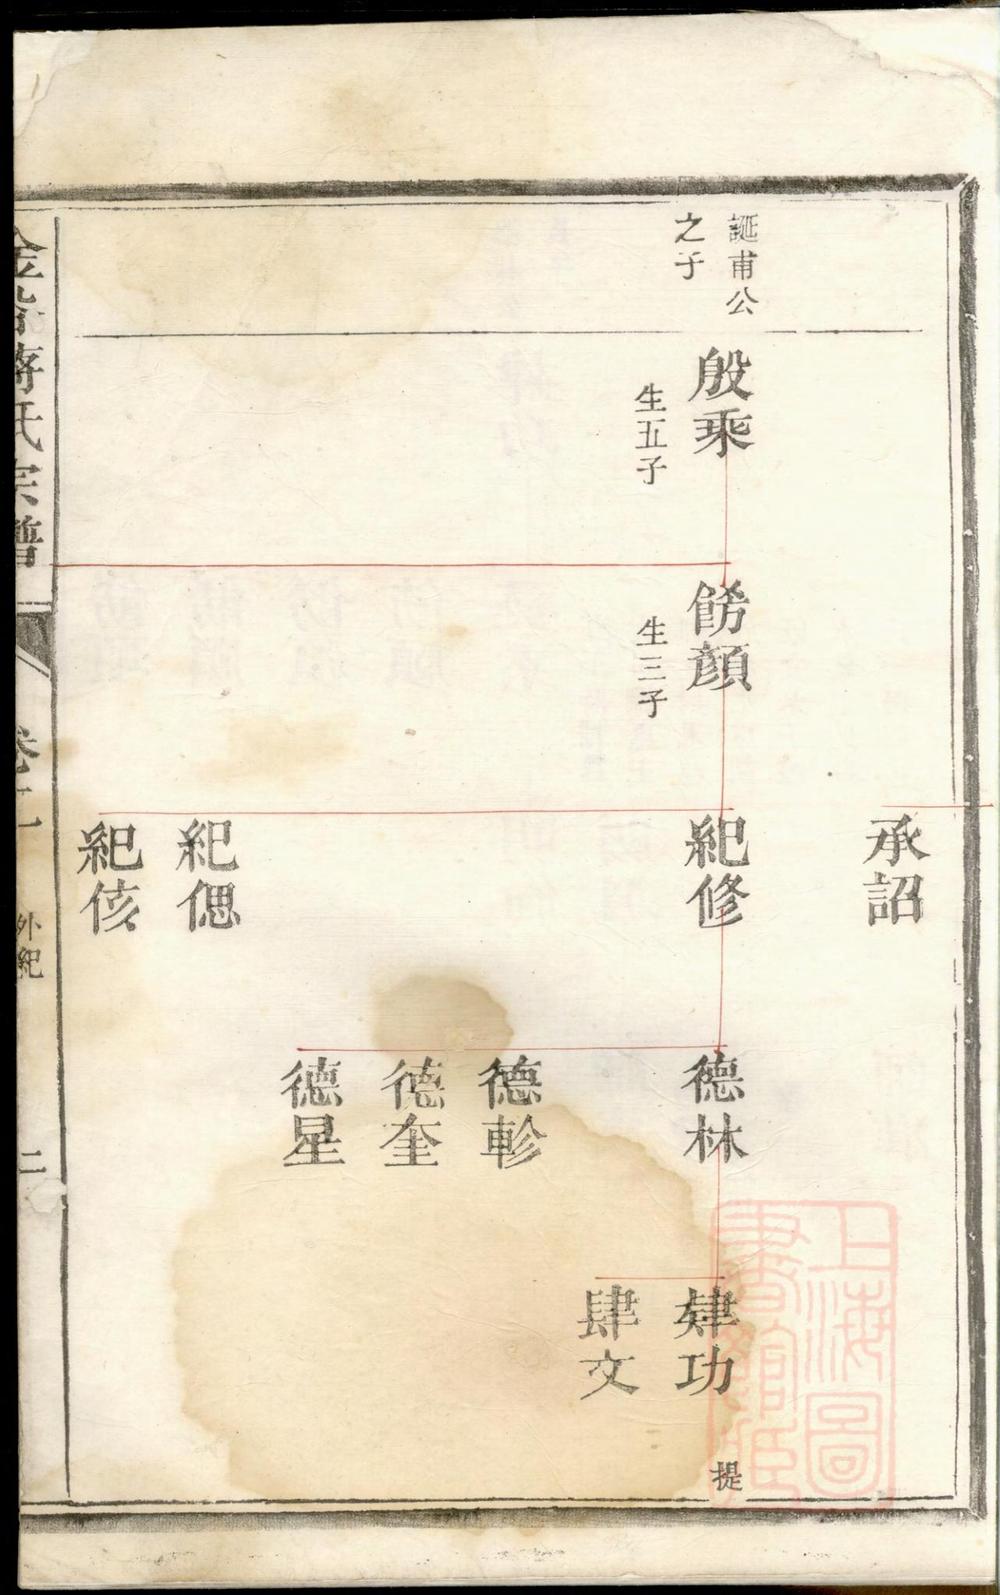 承詔
誕甫公
之子
殷乘
生五子
餝顏
生三子
紀修
紀偲
紀侅
德林
德軫
德奎
德星
肄功
肆文
提
蔣氏宗譜
外紀
二
上海圖
書館藏